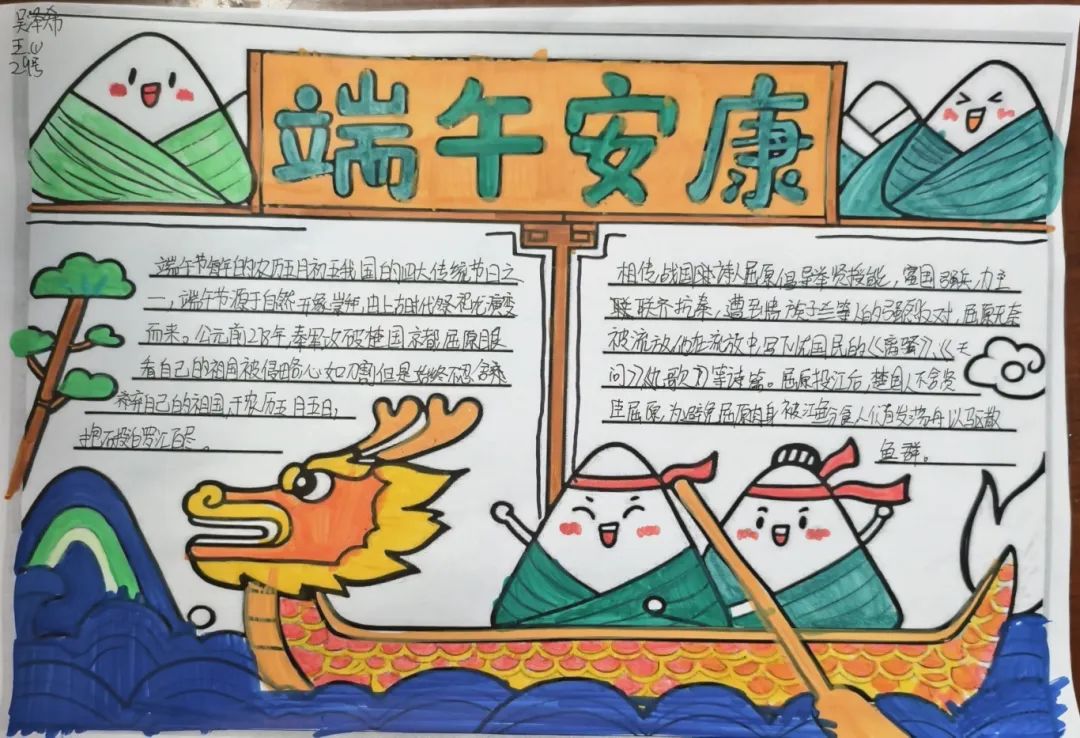 吴泽希
五(1)
29号
端午安康
端午节每年的农历五月初五我国的四大传统节日之
一,端午节源于自然天象崇拜,由上古时代祭祀龙演变
而来。公元前278年,秦军攻破楚国京都屈原眼
看自己的祖国被侵略心如刀割但是始终不忍舍弃
弃自己的祖国,于农历五月五日,
抱石投汨罗江自尽。
相传,战国时诗人屈原倡导举贤授能,富国强兵,力主
联联齐抗秦,遭到 子兰等人的强烈反对,屈原无奈
被流放,他在流放中,写下忧国民的《离骚》、《天
问》《九歌》等诗篇。屈原投江后,楚国人不舍贤
臣屈原,为避免屈原肉身被江鱼分食人们有发荡舟以驱散
鱼群。